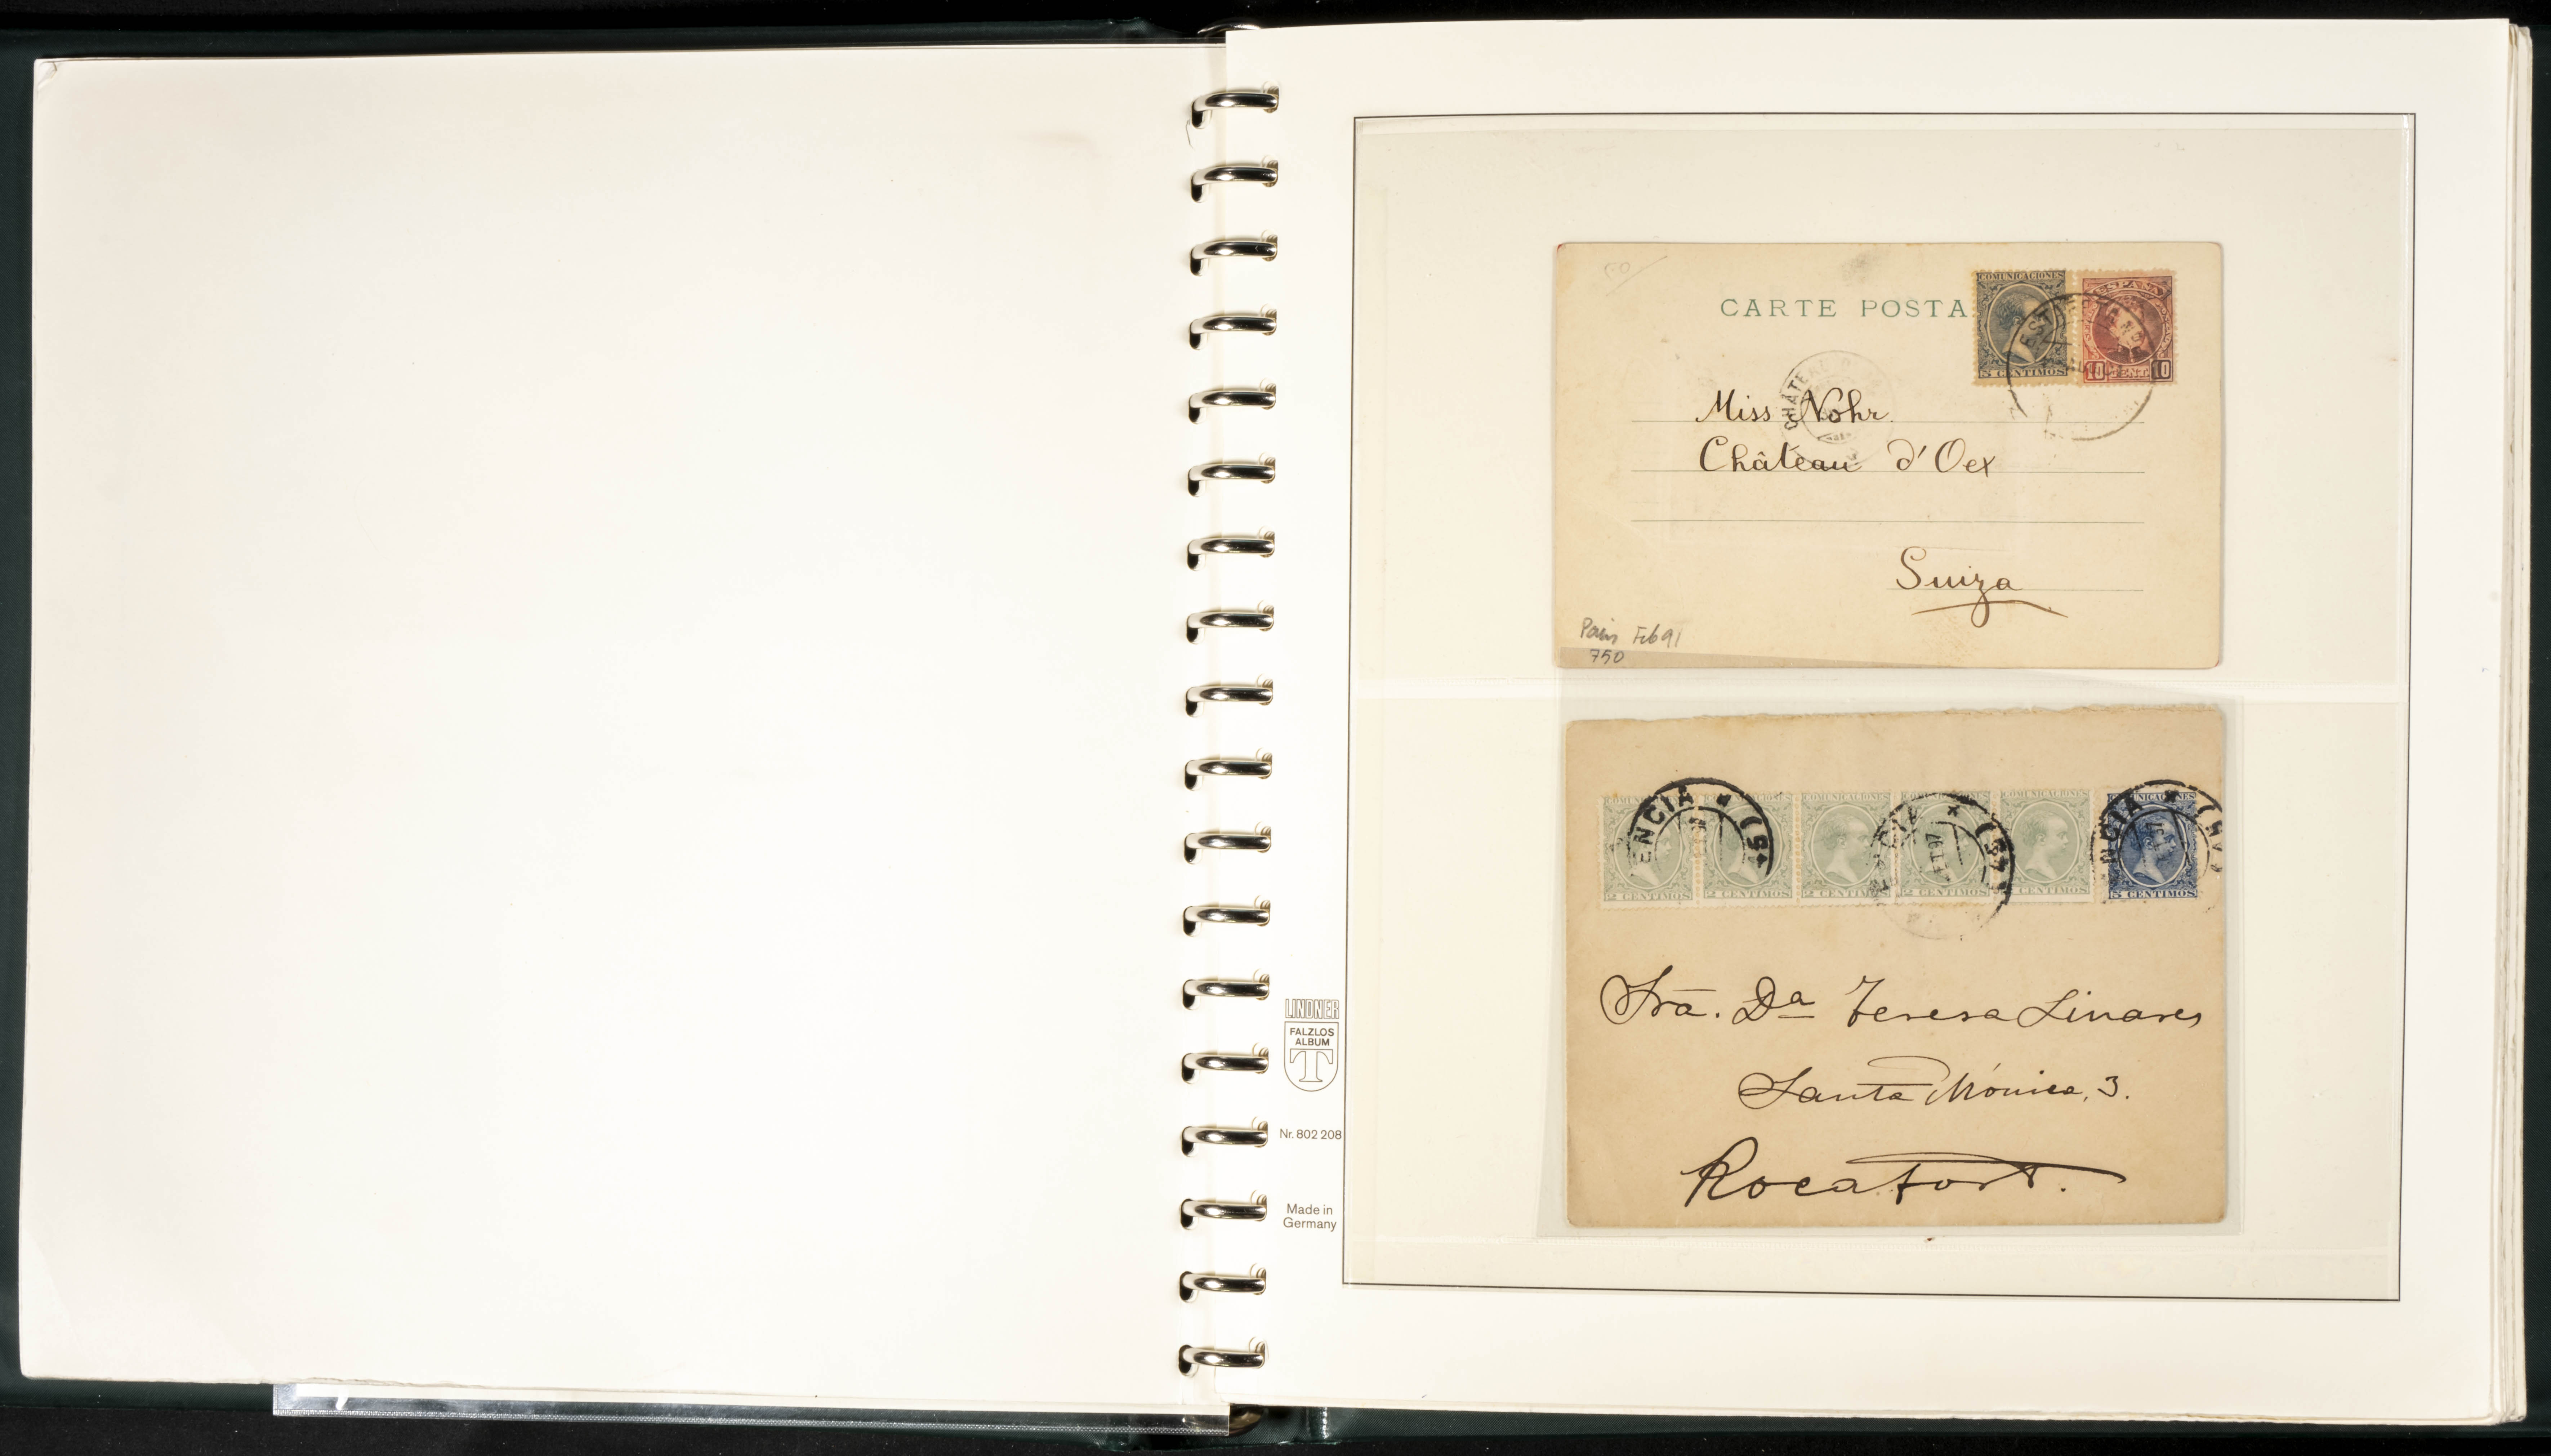 CARTE POSTA
COMUNICACIONES
5 CENTIMOS
ESPAÑA
10 CENT. 10
EST
CHATEAU D
Miss Nohr.
Château d'Oex
Suiza
Paris Feb 91
750
COMUNICACIONES
2 CENTIMOS
COMUNICACIONES
2 CENTIMOS
COMUNICACIONES
2 CENTIMOS
COMUNICACIONES
2 CENTIMOS
COMUNICACIONES
2 CENTIMOS
COMUNICACIONES
5 CENTIMOS
ENCIA * (54)
CIA * (54)
NCIA * (54)
Sra. Da Teresa Linares
Santa Mónica, 3.
Rocafort.
LINDNER
FALZLOS
ALBUM
T
Nr. 802 208
Made in
Germany